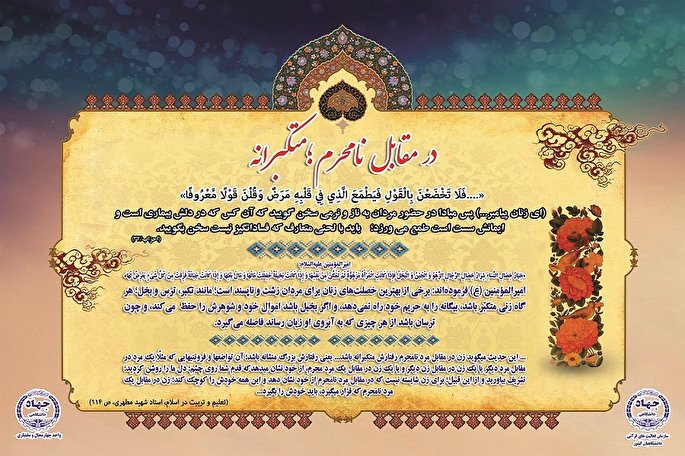 در مقابل نامحرم ؛ متکبرانه
«....فَلَا تَخْضَعْنَ بِالْقَوْلِ فَيَطْمَعَ الَّذِي فِي قَلْبِهِ مَرَضٌ وَقُلْنَ قَوْلًا مَّعْرُوفًا»
(ای زنان پیامبر...) پس مبادا در حضور مردان به ناز و نرمی سخن گویید که آن کس که در دلش بیماری است و
ایمانش سست است طمع می ورزد؛ باید با لحنی متعارف که فسادانگیز نیست سخن بگویید.
(احزاب،۳۲)
امیرالمؤمنین علیه‌السلام:
امیرالمؤمنین (ع) فرموده‌اند: برخی از بهترین خصلت‌های زنان برای مردان زشت و ناپسند است؛ مانند تکبر، ترس و بخل؛ هر
گاه زنی متکبّر باشد، بیگانه را به حریم خود راه نمی‌دهد، و اگر بخیل باشد اموال خود و شوهرش را حفظ می‌کند، و چون
ترسان باشد از هر چیزی که به آبروی او زیان رساند فاصله می‌گیرد.
... این حدیث میگوید زن در مقابل مرد نامحرم رفتارش متکبرانه باشد... یعنی رفتارش بزرگ منشانه باشد؛ آن تواضعها و فروتنیهایی که مثلاً یک مرد در
مقابل مرد دیگر یا یک زن در مقابل زن دیگر و یا یک زن در مقابل یک مرد محرم، از خود نشان میدهد که قدم شما روی چشم، دل ما را روشن کردید؛
تشریف بیاورید و از این قبیل؛ برای زن شایسته نیست که در مقابل مرد نامحرم از خود نشان دهد و این همه خودش را کوچک کند؛ زن در مقابل یک
مرد نامحرم که قرار میگیرد، باید خودش را بگیرد...
(تعلیم و تربیت در اسلام، استاد شهید مطهری، ص ۱۱۴)
جهاد
دانشگاهی
واحد چهارمحال و بختیاری
جهاد
دانشگاهی
سازمان فعالیت های قرآنی
دانشگاهیان کشور